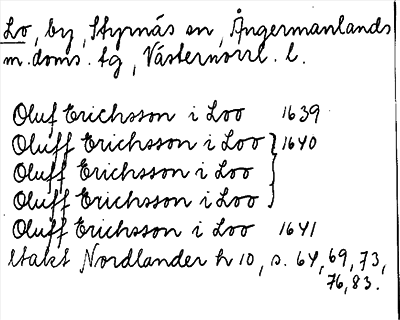 Lo, by, Styrnäs sn, Ångermanlands
m. doms. tg, Västernorrl. l.
Oluf Erichsson i Loo 1639
Oluff Erichsson i Loo } 1640
Oluff Erichsson i Loo
Oluff Erichsson i Loo
Oluff Erichsson i Loo 1641
Utakt Nordlander h 10, s. 64, 69, 73,
76, 83.